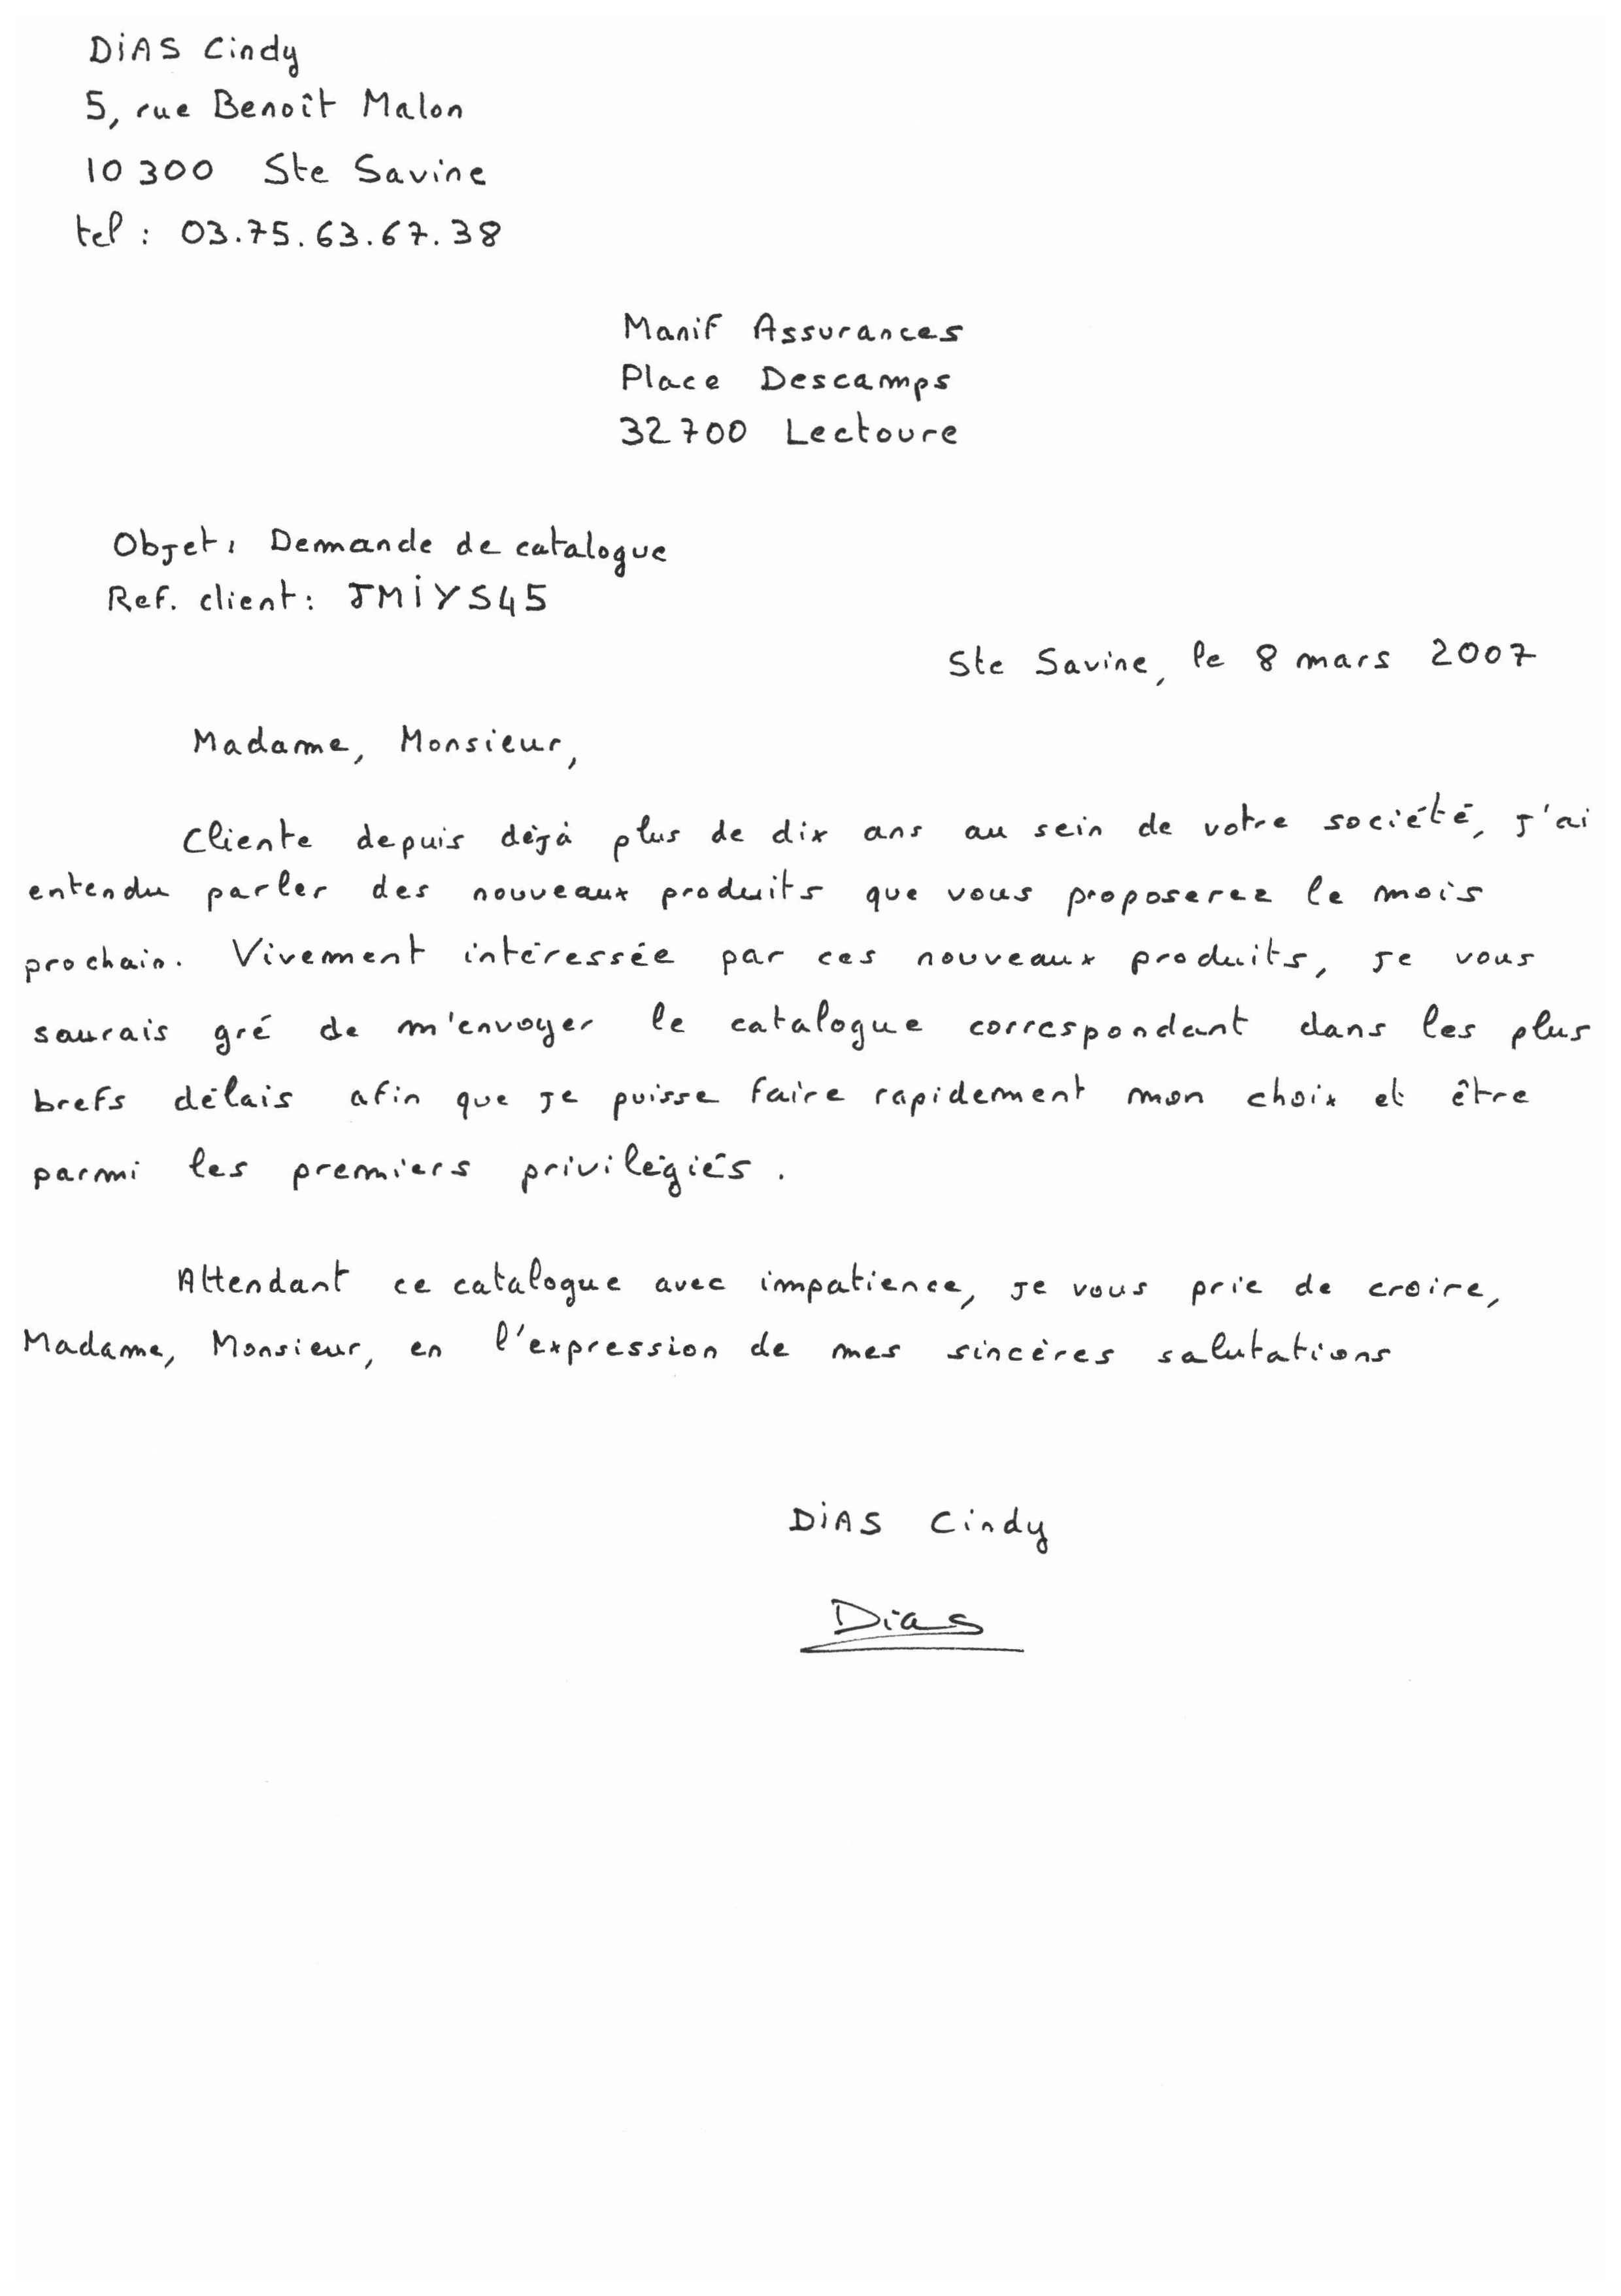 DIAS Cindy
5, rue Benoît Malon
10 300 Ste Savine
tel : 03.75.63.67.38
Manif Assurances
Place Descamps
32700 Lectoure
Objet : Demande de catalogue
Ref. client : JMIYS45
Ste Savine, le 8 mars 2007
Madame, Monsieur,
Cliente depuis déjà plus de dix ans au sein de votre société, j'ai
entendu parler des nouveaux produits que vous proposerez le mois
prochain. Vivement intéressée par ces nouveaux produits, je vous
saurais gré de m'envoyer le catalogue correspondant dans les plus
brefs délais afin que je puisse faire rapidement mon choix et être
parmi les premiers privilégiés.
Attendant ce catalogue avec impatience, je vous prie de croire,
Madame, Monsieur, en l'expression de mes sincères salutations
DIAS Cindy
Dias